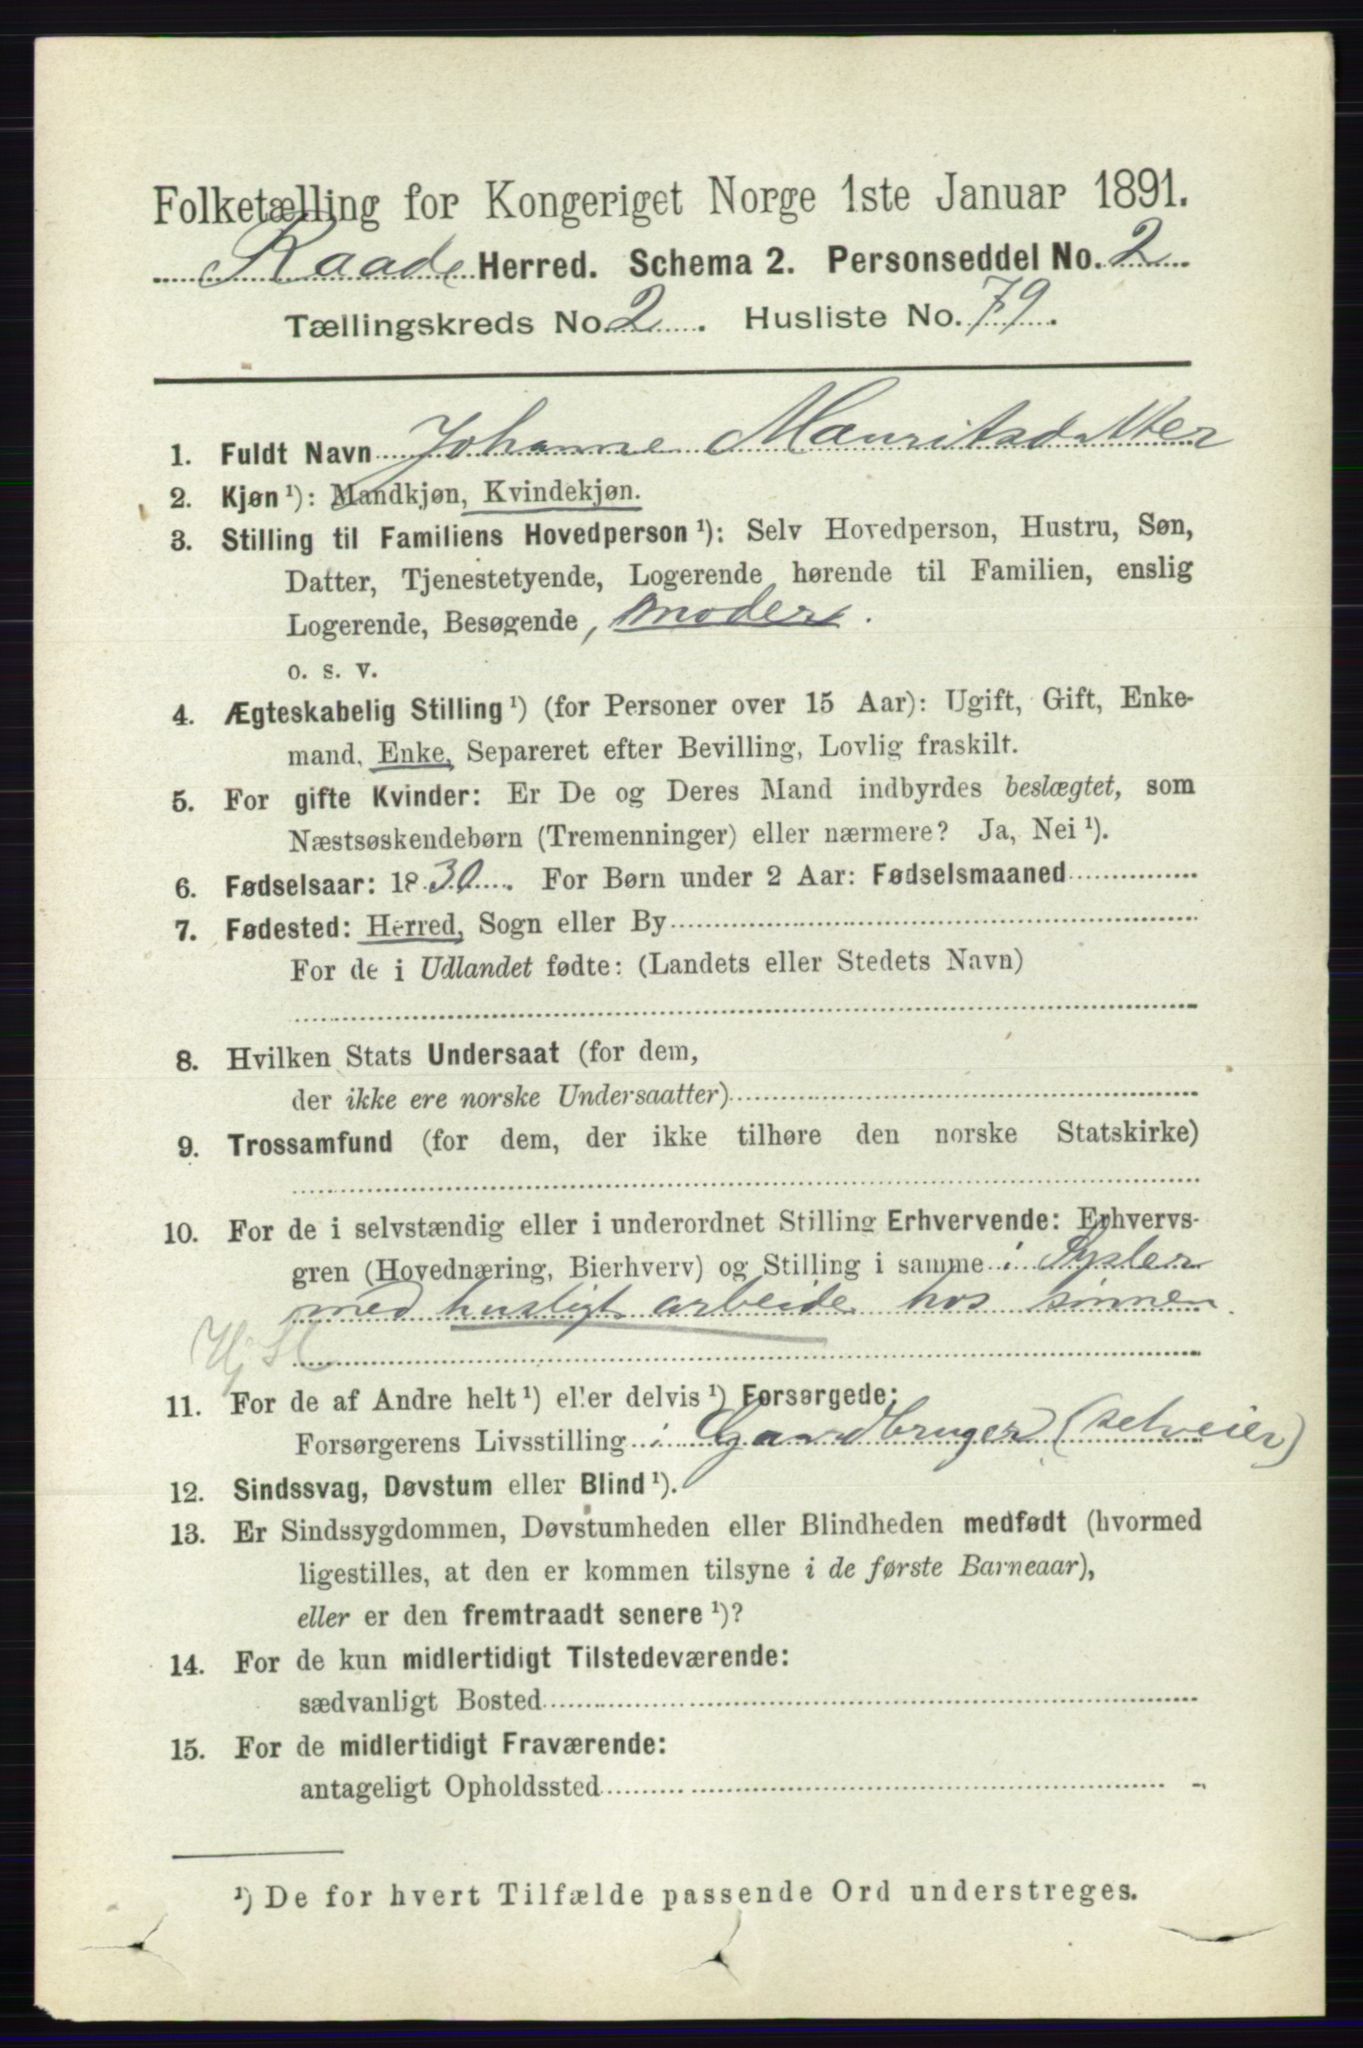 Folketælling for Kongeriget Norge 1ste Januar 1891.
Raade Herred. Schema 2. Personseddel No. 2
Tællingskreds No. 2. Husliste No. 79.
1. Fuldt Navn Johanne Mauritsdatter
2. Kjøn ¹): Mandkjøn, Kvindekjøn.
3. Stilling til Familiens Hovedperson ¹): Selv Hovedperson, Hustru, Søn,
Datter, Tjenestetyende, Logerende hørende til Familien, enslig
Logerende, Besøgende, moder.
o. s. v.
4. Ægteskabelig Stilling ¹) (for Personer over 15 Aar): Ugift, Gift, Enke-
mand, Enke, Separeret efter Bevilling, Lovlig fraskilt.
5. For gifte Kvinder: Er De og Deres Mand indbyrdes beslægtet, som
Næstsøskendebørn (Tremenninger) eller nærmere? Ja, Nei ¹).
6. Fødselsaar: 1830. For Børn under 2 Aar: Fødselsmaaned
7. Fødested: Herred, Sogn eller By
For de i Udlandet fødte: (Landets eller Stedets Navn)
8. Hvilken Stats Undersaat (for dem,
der ikke ere norske Undersaatter)
9. Trossamfund (for dem, der ikke tilhøre den norske Statskirke)
10. For de i selvstændig eller i underordnet Stilling Erhvervende: Erhvervs-
gren (Hovednæring, Bierhverv) og Stilling i samme i Sysler
med husligt arbeide hos sønnen
11. For de af Andre helt ¹) eller delvis ¹) Forsørgede:
Forsørgerens Livsstilling i Gaardbruger (selveier)
12. Sindssvag, Døvstum eller Blind ¹).
13. Er Sindssygdommen, Døvstumheden eller Blindheden medfødt (hvormed
ligestilles, at den er kommen tilsyne i de første Barneaar),
eller er den fremtraadt senere ¹)?
14. For de kun midlertidigt Tilstedeværende:
sædvanligt Bosted
15. For de midlertidigt Fraværende:
antageligt Opholdssted
¹) De for hvert Tilfælde passende Ord understreges.